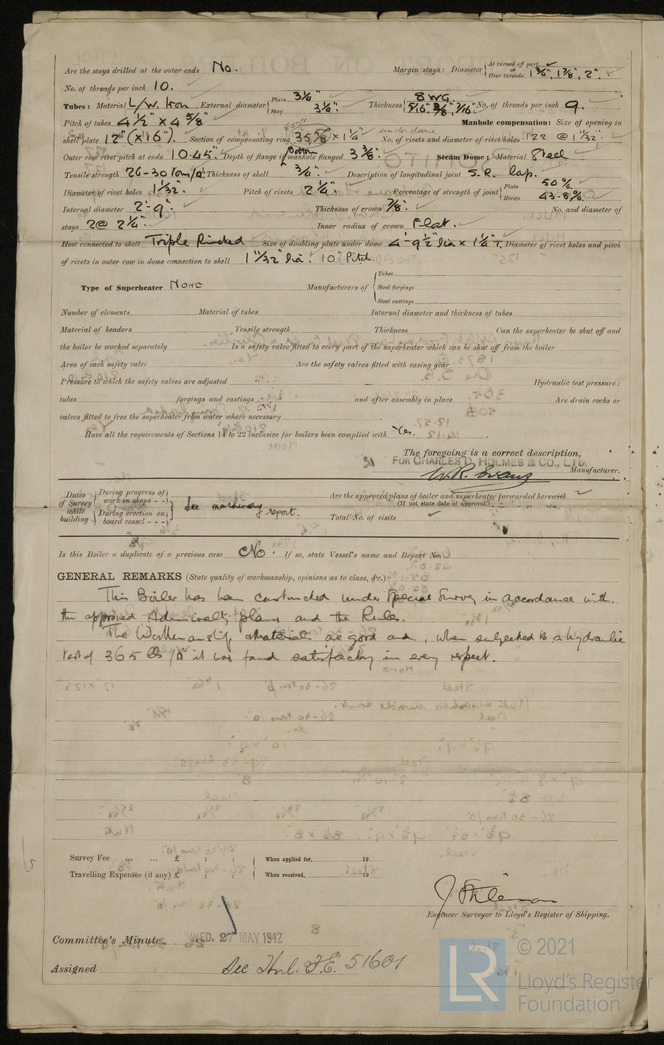 Are the stays drilled at the outer ends No. Margin stays: Diameter { At turned off part, or Over threads 1 3/4", 1 7/8", 2".
No. of threads per inch 10.
Tubes: Material L/W. Iron External diameter { Plain 3 1/4" Stay 3 1/4". Thickness { 8 WG. 5/16", 3/8", 7/16" No. of threads per inch 9.
Pitch of tubes 4 1/2" x 4 5/8" Manhole compensation: Size of opening in
shell plate 12" (x16"). Section of compensating ring x 1 1/4" No. of rivets and diameter of rivet holes 122 @ 1 1/32".
Outer row rivet pitch at ends 10.45". Depth of flange if manhole flanged Bottom 3 3/8". Steam Dome: Material Steel
Tensile strength 26-30 tons/□". Thickness of shell 3/4". Description of longitudinal joint S.R. Lap.
Diameter of rivet holes 1 1/32". Pitch of rivets 2 1/4" Percentage of strength of joint { Plate 54%. Rivets 43.8%.
Internal diameter 2'-9". Thickness of crown 7/8". No. and diameter of
stays 2 @ 2 1/4". Inner radius of crown Flat.
How connected to shell Triple Riveted Size of doubling plate under dome 4'-9 1/2" dia x 1 1/4" T. Diameter of rivet holes and pitch
of rivets in outer row in dome connection to shell 1 1/32" dia. 10" Pitch.
Type of Superheater None Manufacturers of { Tubes Steel forgings Steel castings
Number of elements Material of tubes Internal diameter and thickness of tubes
Material of headers Tensile strength Thickness Can the superheater be shut off and
the boiler be worked separately Is a safety valve fitted to every part of the superheater which can be shut off from the boiler
Area of each safety valve Are the safety valves fitted with easing gear
Pressure to which the safety valves are adjusted Hydraulic test pressure:
tubes forgings and castings and after assembly in place Are drain cocks or
valves fitted to free the superheater from water where necessary
Have all the requirements of Sections 14 to 22 inclusive for boilers been complied with Yes.
The foregoing is a correct description,
FOR CHARLES D. HOLMES & CO., LTD.
W.R. Evans Manufacturer.
Dates of Survey while building { During progress of work in shops - - During erection on board vessel - - - } See machinery report.
Are the approved plans of boiler and superheater forwarded herewith
(If not state date of approval.)
Total No. of visits
Is this Boiler a duplicate of a previous case No. If so, state Vessel's name and Report No.
GENERAL REMARKS (State quality of workmanship, opinions as to class, &c.)
This Boiler has been constructed under Special Survey in accordance with
the approved Admiralty plans and the Rules.
The Workmanship & materials are good and, when subjected to a hydraulic
test of 365 lbs/□" it was found satisfactory in every respect.
Survey Fee ... ... £ : : When applied for, 19
Travelling Expenses (if any) £ : : When received, 19
Engineer Surveyor to Lloyd's Register of Shipping.
Committee's Minute WED. 27 MAY 1942
Assigned See Hul. F.E. 51601
© 2021
Lloyd's Register
Foundation
LR